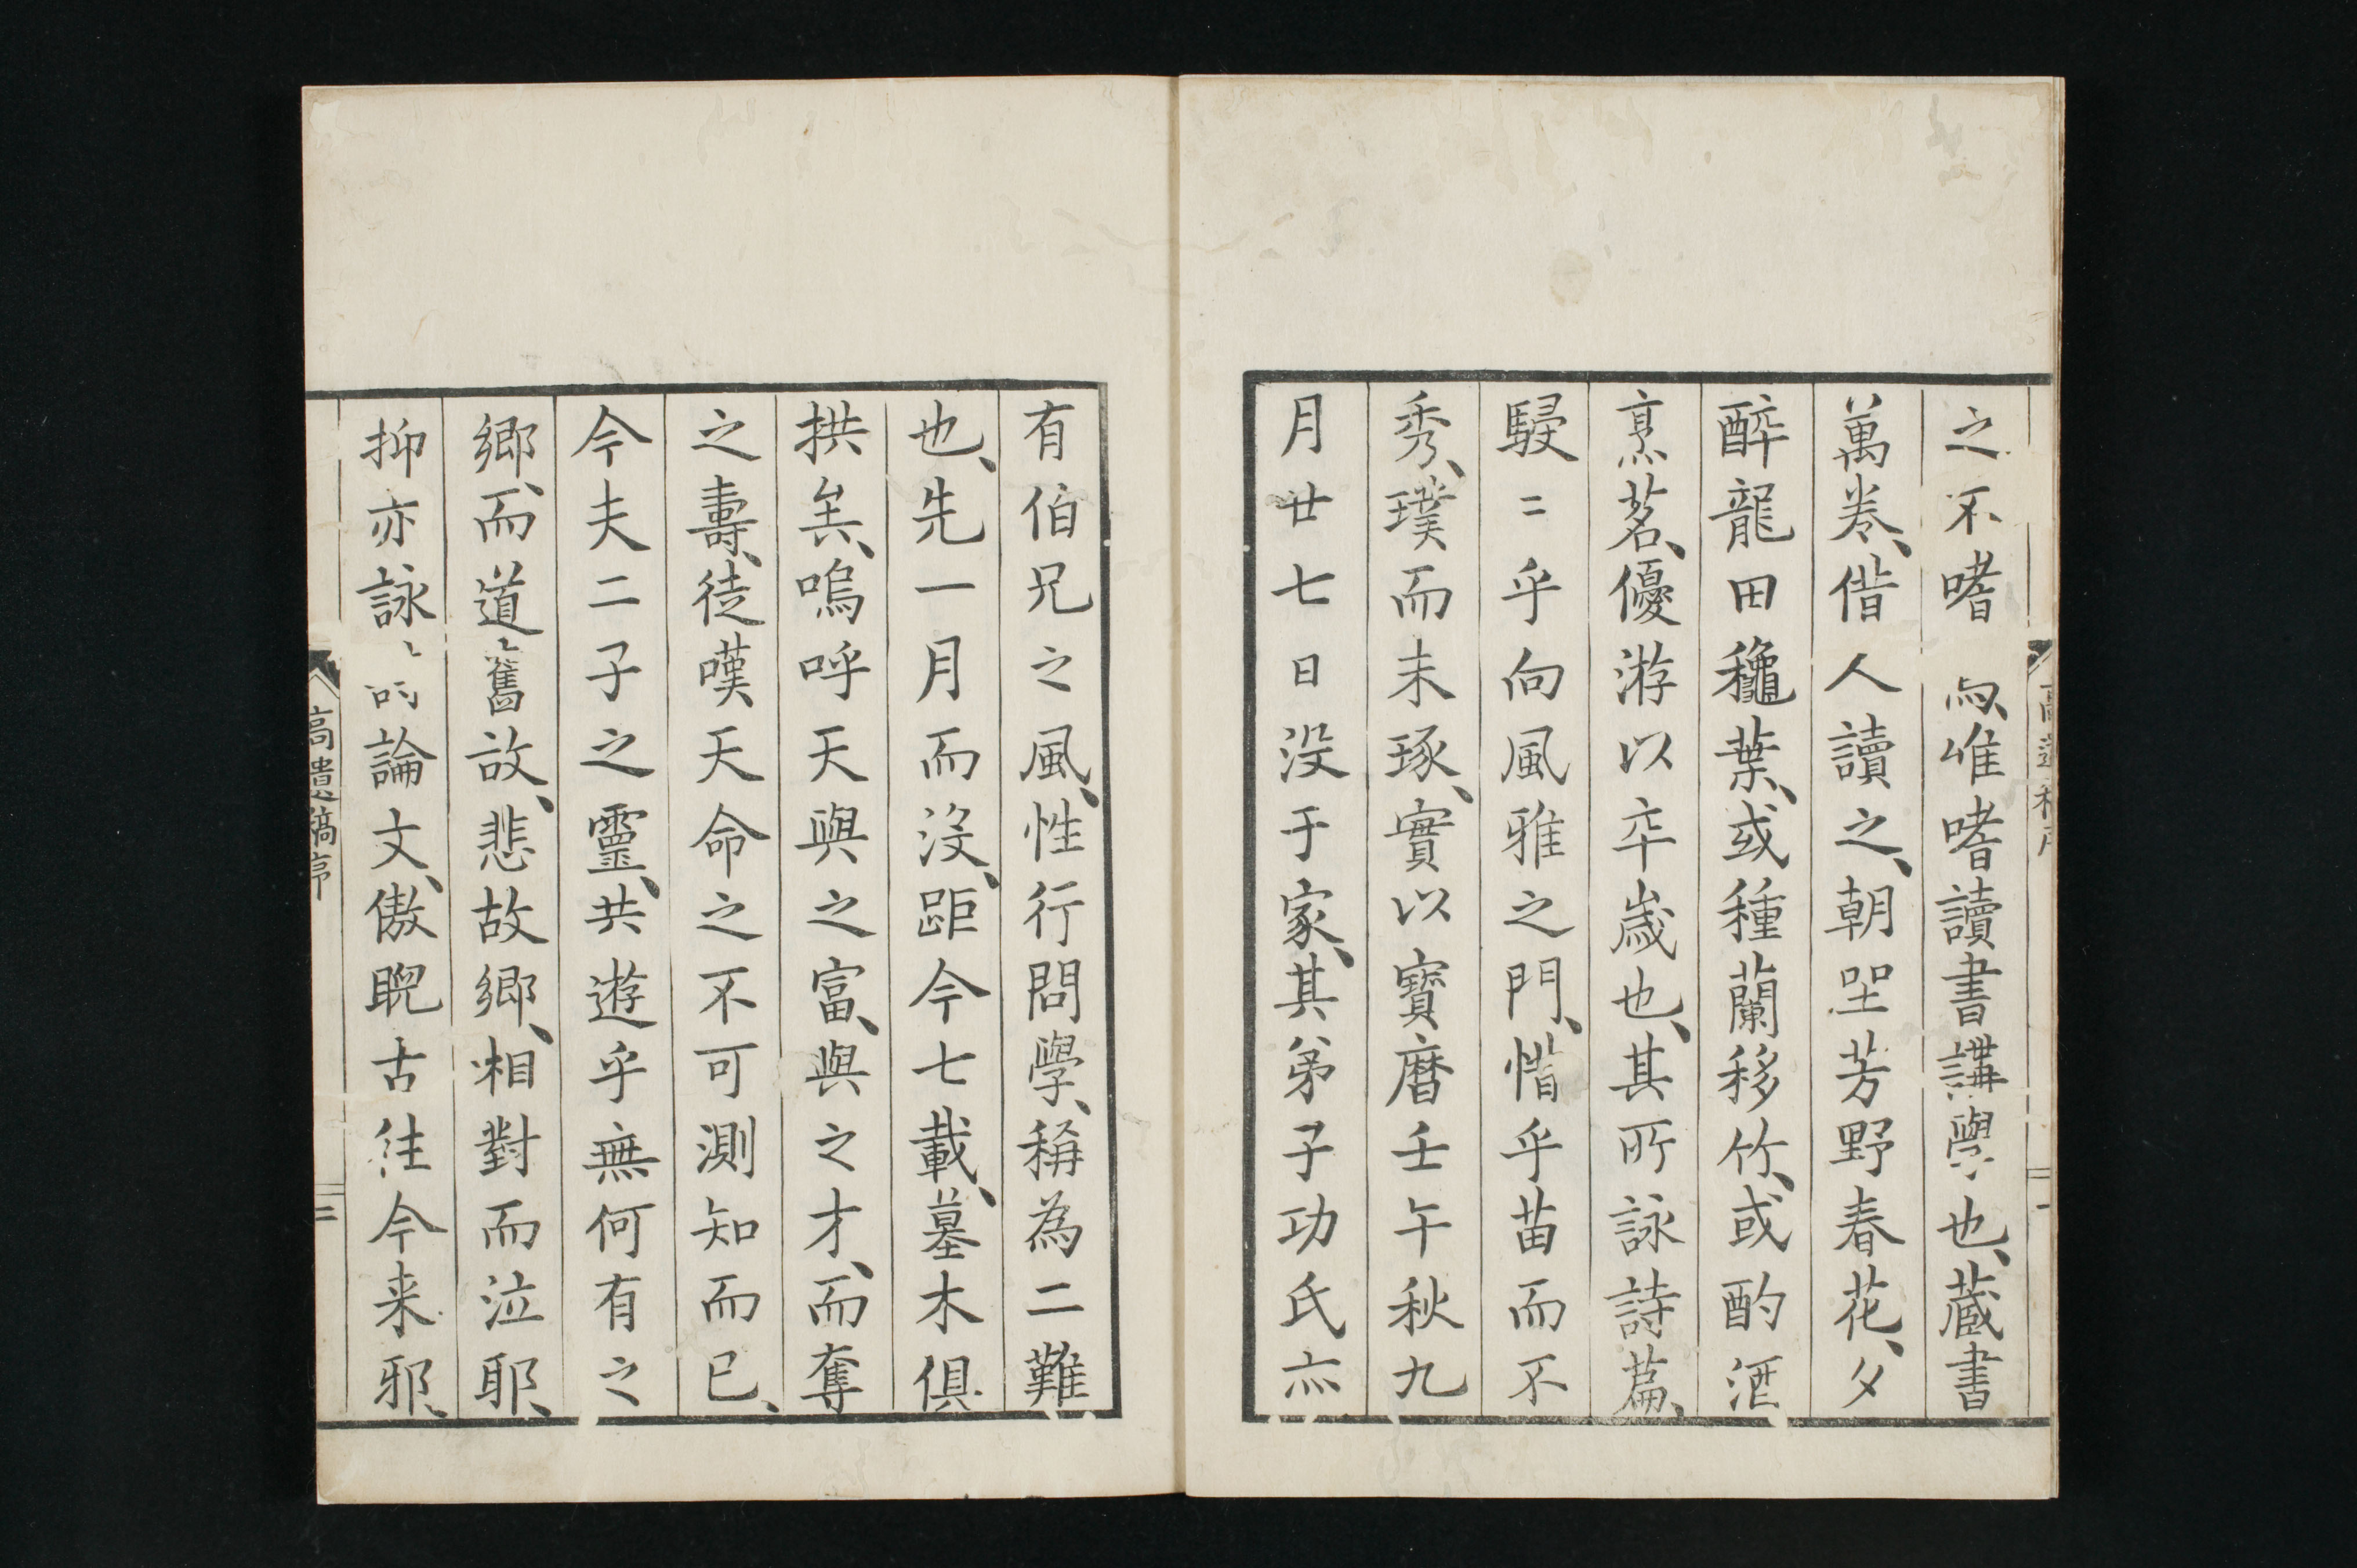 之不嗜 唯嗜讀書講學也、藏書
萬卷、借人讀之、朝坐芳野春花、夕
醉龍田穐葉、或種蘭移竹、或酌酒
烹茗、優游以卒歲也、其所詠詩篇、
駸〻乎向風雅之門、惜乎苗而不
秀、璞而未琢、實以寶曆壬午秋九
月廿七日没于家、其弟子功氏亦
有伯兄之風、性行問學、稱為二難
也、先一月而没、距今七載、墓木俱
拱矣、嗚呼天與之富、與之才、而奪
之壽、徒嘆天命之不可測知而已、
今夫二子之靈、共遊乎無何有之
鄉、而道舊故、悲故鄉、相對而泣耶、
抑亦詠 論文、傲睨古往今来邪、
高遺稿序
二